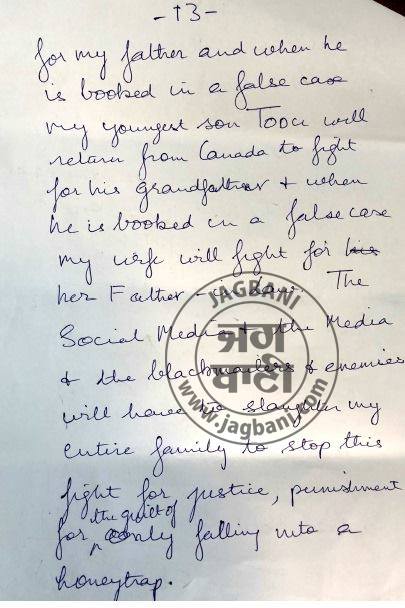 -13-
for my father and when he
is booked in a false case
my youngest son Toou will
return from Canada to fight
for his grandfather & when
he is booked in a false case
my wife will fight for his
her Father - in - Law. The
Social Media & the Media
& the blackmailers & enemies
will have to slaughter my
entire family to stop this
fight for justice, punishment
for the guilt of only falling into a
honeytrap.
JAGBANI
ਜਗ
ਬਾਣੀ
www.jagbani.com